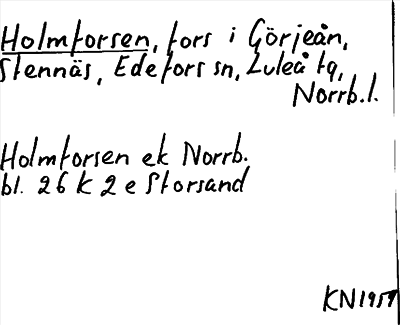 Holmforsen, fors i Görjeån,
Stennäs, Edefors sn, Luleå tg,
Norrb.l.
Holmforsen ek Norrb.
bl. 26 K 2 e Storsand
KN1959